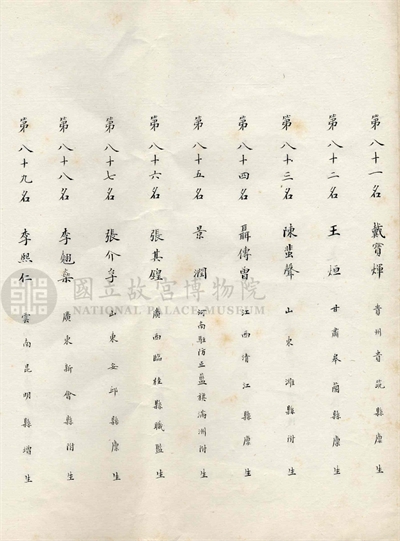 第八十一名 戴寶煇 貴州貴筑縣廩生
第八十二名 王烜 甘肅皋蘭縣廩生
第八十三名 陳蜚聲 山東濰縣附生
第八十四名 聶傳曾 江西清江縣廩生
第八十五名 景潤 河南駐防正藍旗滿洲附生
第八十六名 張其鍠 廣西臨桂縣職監生
第八十七名 張介孚 山東安邱縣廩生
第八十八名 李翹燊 廣東新會縣附生
第八十九名 李熙仁 雲南昆明縣增生
國立故宮博物院
NATIONAL PALACE MUSEUM